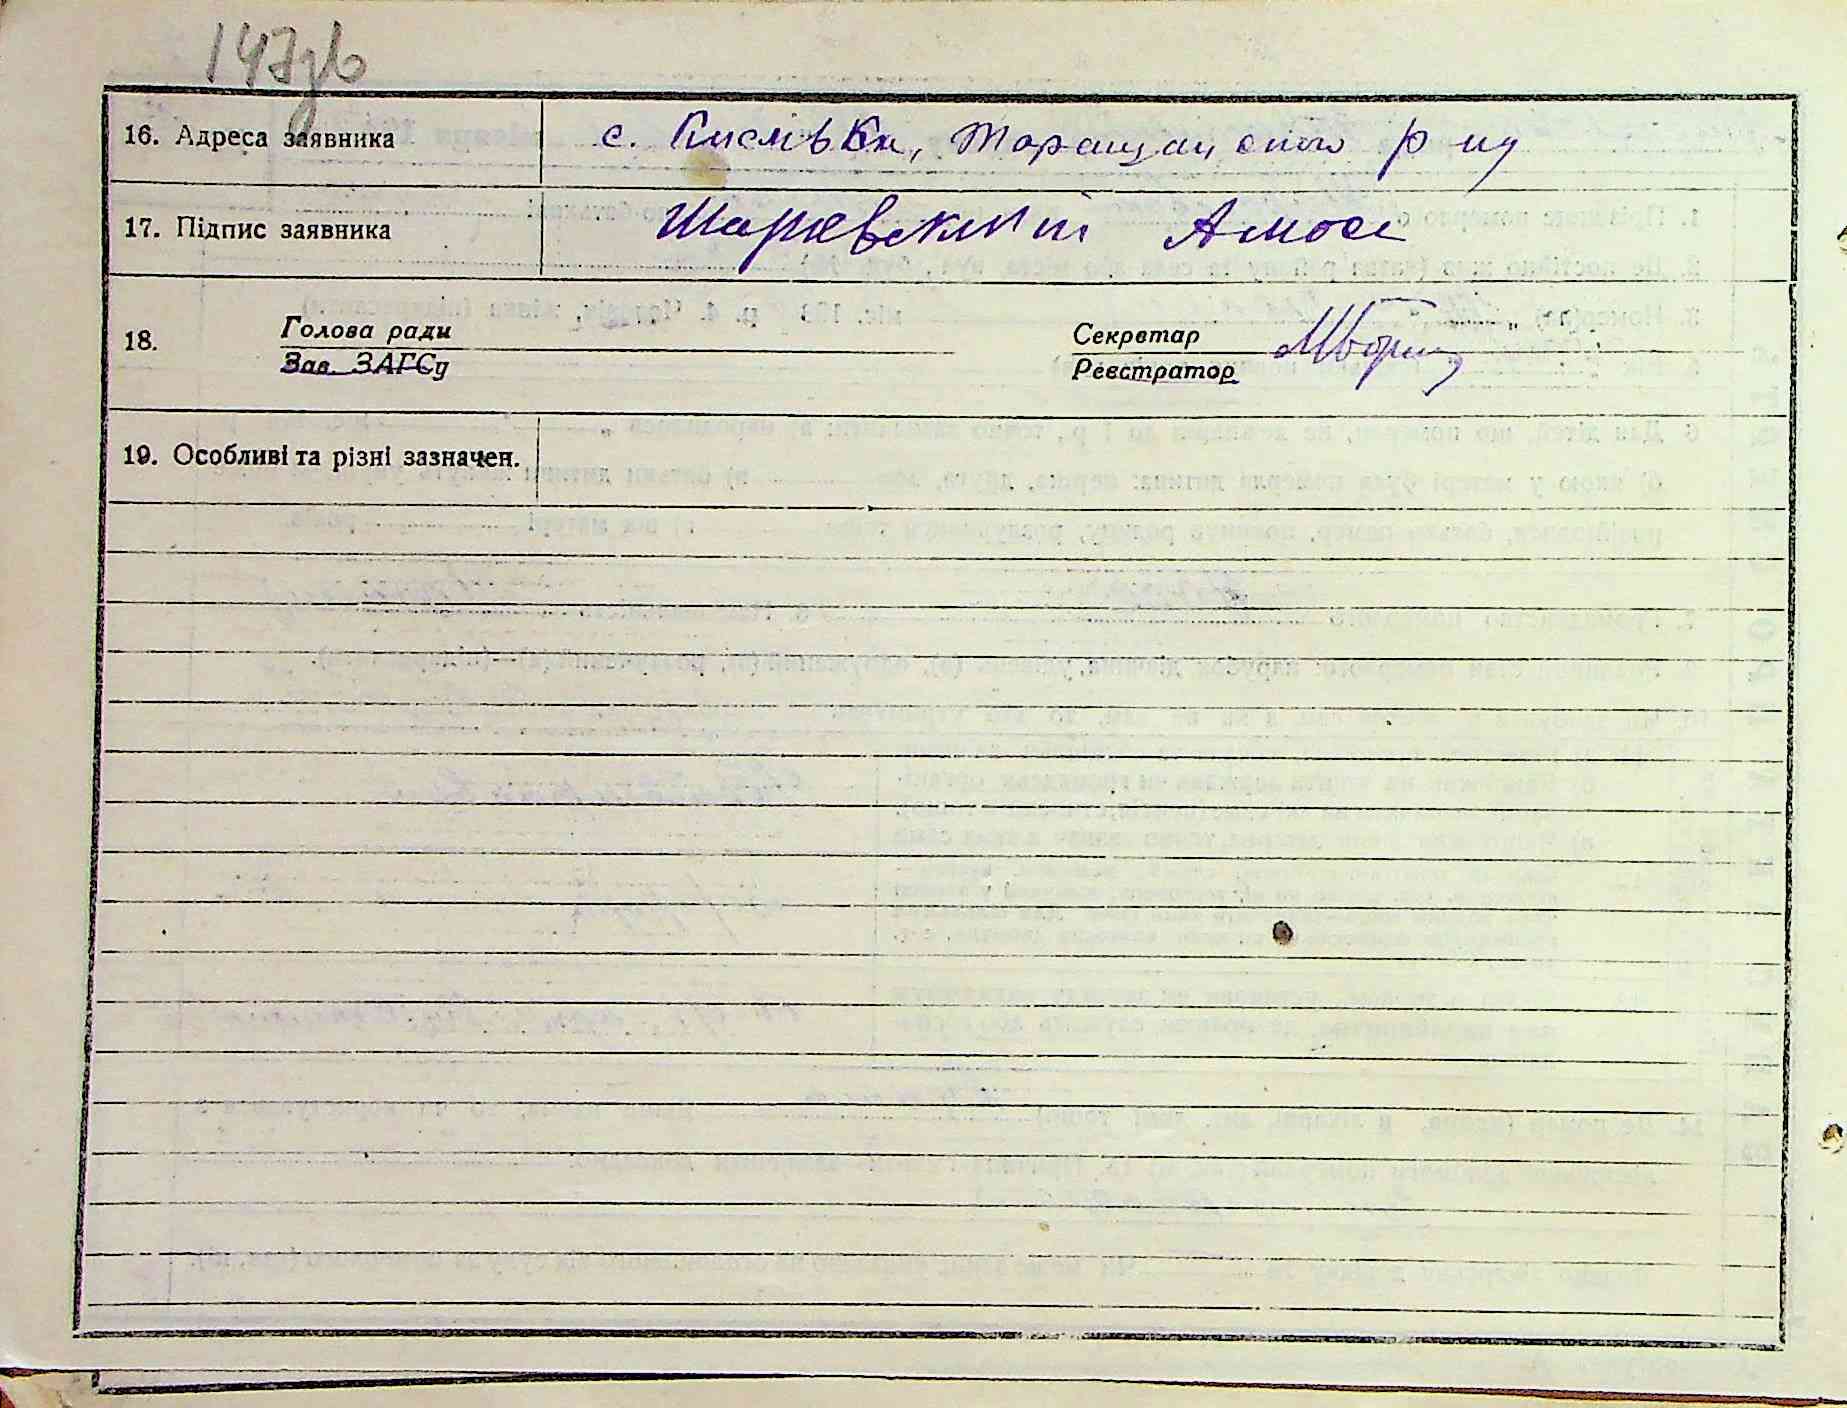 147зв
16. Адреса заявника с. Кислівка, Таращанського р-ну
17. Підпис заявника Шаревский Амос
18. Голова ради Секретар
Зав. ЗАГСу Реєстратор
19. Особливі та різні зазначен.